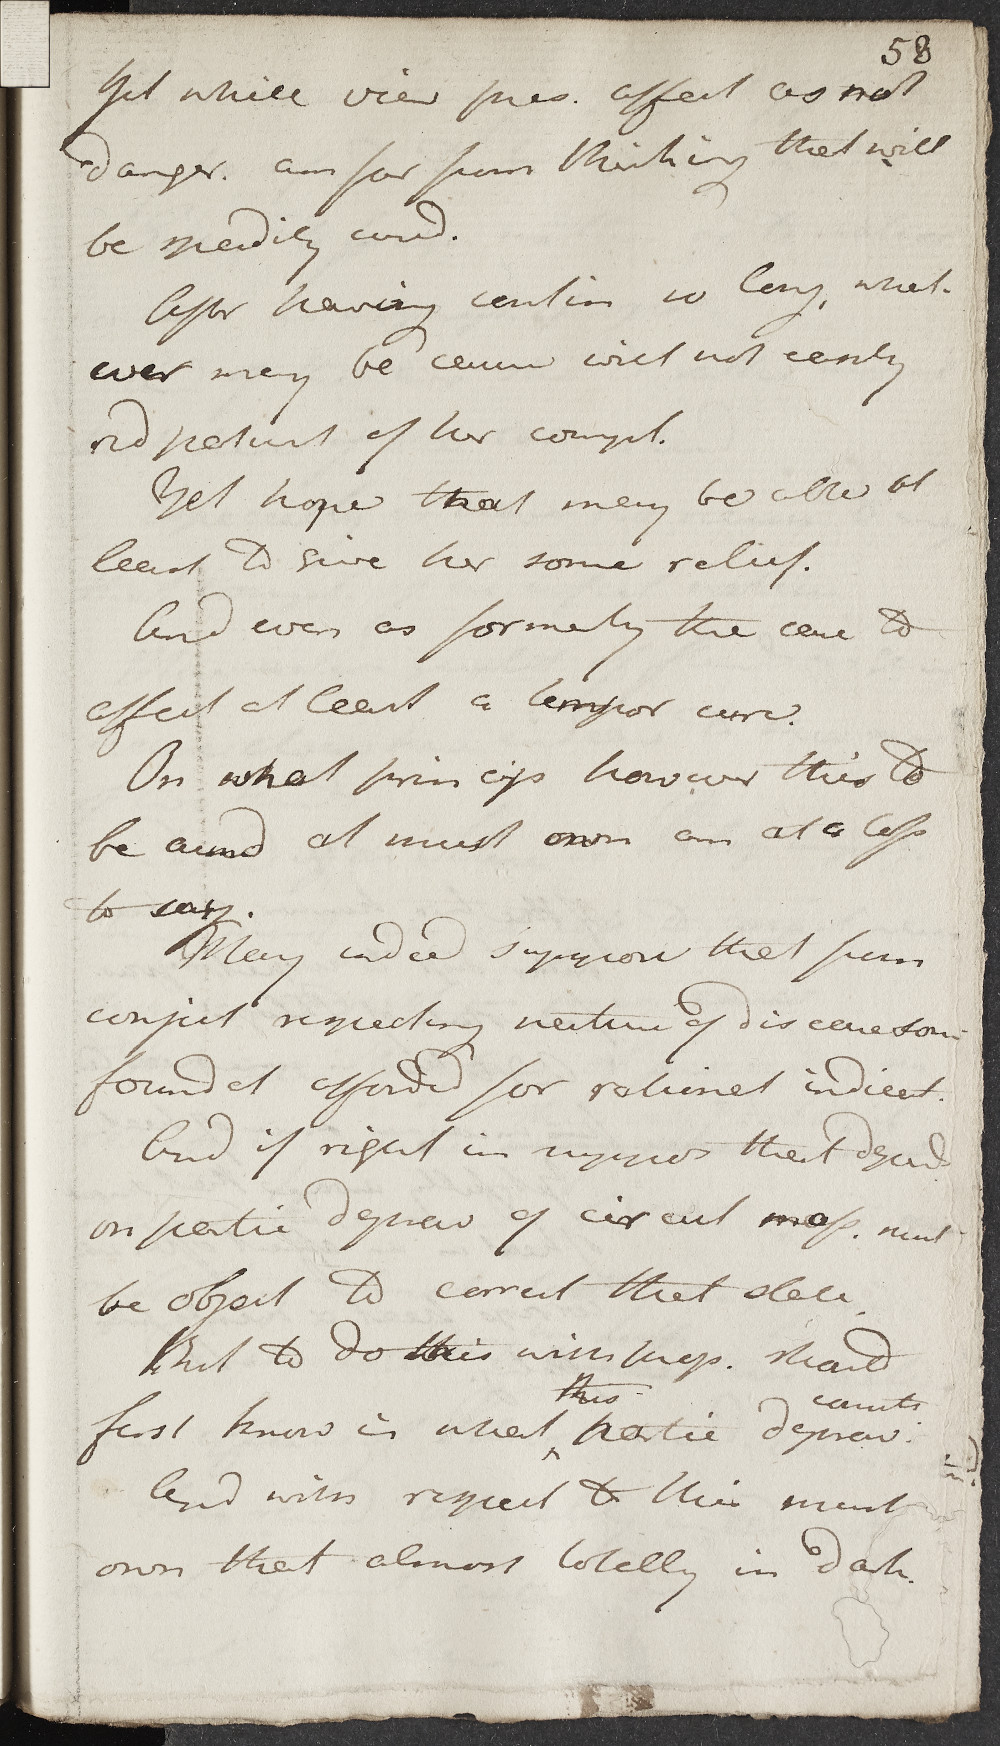 58
Yet while view pres. affect as not
danger. am far from thinking that will
be speedily cured.
After having contin so long, what-
ever may be cause will not easily
rid patient of her compt.
Yet hope that may be able at
least to give her some relief.
And even as formerly the case to
affect at least a tempor cure.
On what princip however this to
be aimd at must own am at a loss
to say.
May indeed suppose that from
conject respecting nature of disease some
foundat afforded for rational indicat.
And if right in suppos that depend
on partic deprav of circul mass. must
be object to correct that state
But to do this with prop. should
this consists
first know in what partic deprav.
And with respect to this must
own that almost totally in dark.